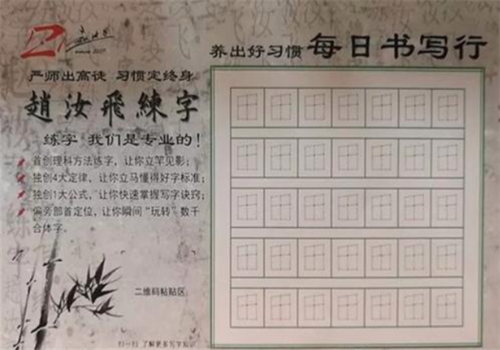 养出好习惯 每日书写行
严师出高徒 习惯定终身
趙汝飛練字
练字 我们是专业的！
首创理科方法练字，让你立竿见影；
独创4大定律，让你立马懂得好字标准；
独创1大公式，让你快速掌握写字诀窍；
偏旁部首定位，让你瞬间“玩转”数千
合体字。
二维码粘贴区
扫一扫 了解更多写字知识